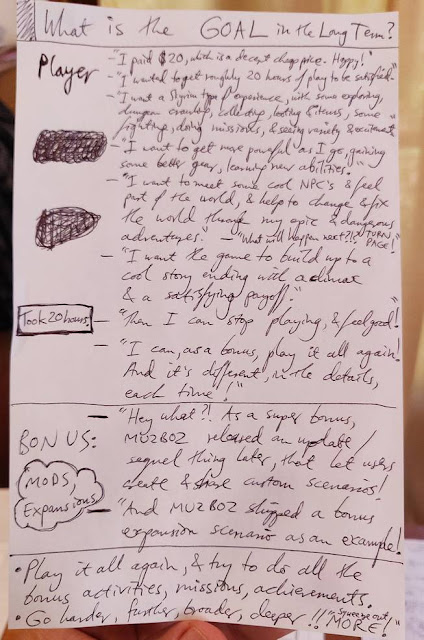 What is the GOAL in the Long Term?
Player
– "I paid $20, which is a decent cheap price. Happy!"
– "I wanted to get roughly 20 hours of play to be satisfied."
– "I want a Skyrim type of experience, with some exploring,
dungeon crawling, collecting, looting & items, some
fighting, doing missions, & seeing variety & excitement."
– "I want to get more powerful as I go, gaining
some better gear, learning new abilities."
– "I want to meet some cool NPC's & feel
part of the world, & help to change & fix
the world through my epic & dangerous
adventures." – "What will happen next?!? TURN
PAGE!"
– "I want the game to build up to a
cool story ending with a climax
& a satisfying payoff."
Took 20 hours!
– "Then I can stop playing, & feel good!"
– "I can, as a bonus, play it all again!
And it's different, in the details,
each time!"
BONUS:
MODS,
Expansions
– "Hey what?! As a super bonus,
MUZBOZ released an update/
sequel thing later, that let users
create & share custom scenarios!
– "And MUZBOZ shipped a bonus
expansion scenario as an example!
• Play it all again, & try to do all the
bonus activities, missions, achievements.
• Go harder, further, broader, deeper!! "Squeeze out
MORE!"